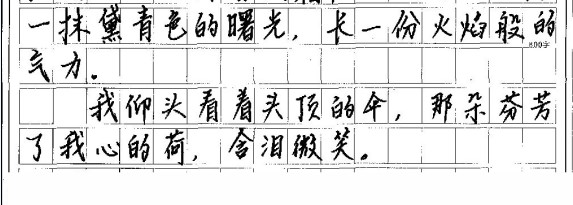 一抹黛青色的曙光，长一份火焰般的
800字
气力。
我仰头看着头顶的伞，那朵芬芳
了我心的荷，含泪微笑。